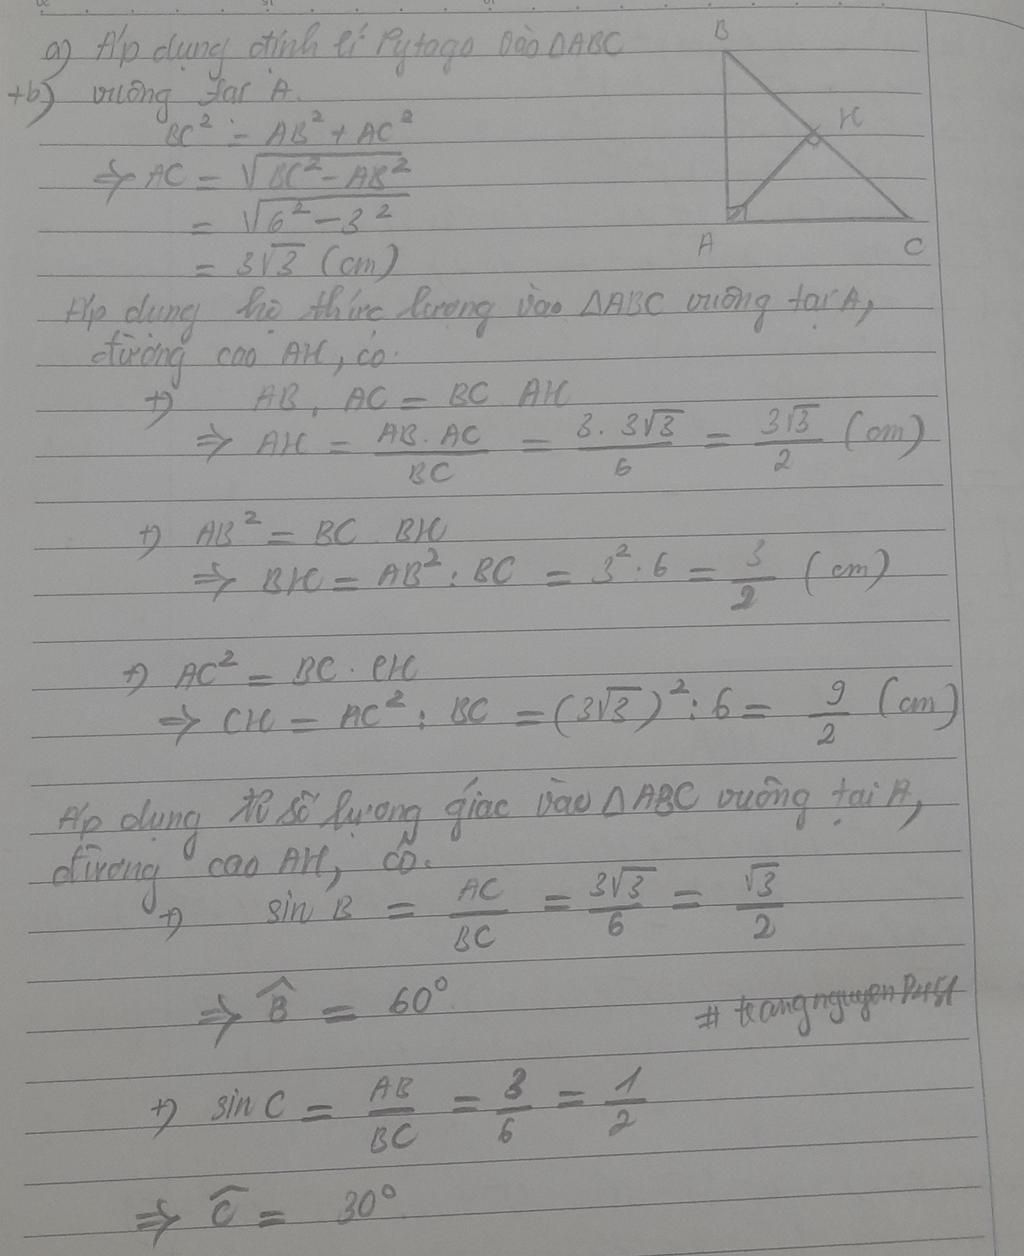 a) Áp dụng định lí Pytago vào ΔABC
+b) vuông tại A.
BC² = AB² + AC²
⇒ AC = √(BC² - AB²)
= √(6² - 3²)
= 3√3 (cm)
B
H
A
C
Áp dụng hệ thức lượng vào ΔABC vuông tại A,
đường cao AH, có.
+) AB . AC = BC AH
⇒ AH = AB.AC/BC = 3.3√3/6 = 3√3/2 (cm)
+) AB² = BC BH
⇒ BH = AB² : BC = 3² . 6 = 3/2 (cm)
+) AC² = BC . CH
⇒ CH = AC² : BC = (3√3)² : 6 = 9/2 (cm)
Áp dụng tỉ số lượng giác vào ΔABC vuông tại A,
đường cao AH, có.
+) sin B = AC/BC = 3√3/6 = √3/2
⇒ B̂ = 60°
+) sin C = AB/BC = 3/6 = 1/2
⇒ Ĉ = 30°